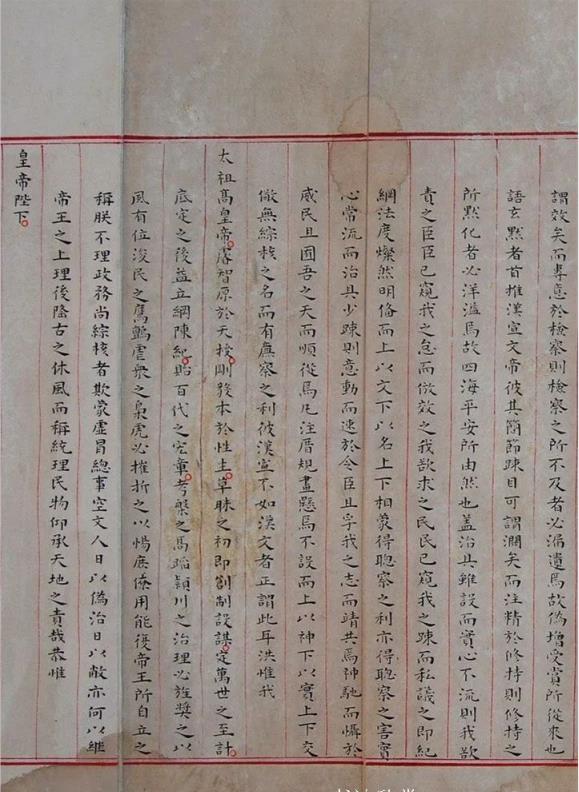 謂效矣而專意於檢察則檢察之所不及者必漏遺焉故偽增受賞所從來也
語玄默者首推漢宣文帝彼其簡節疎目可謂濶矣而注精於修持則修持之
所默化者必洋溢焉故四海平安所由然也蓋治具雖設而實心不流則我欲
責之臣臣已窺我之怠而倣效之我欲求之民民已窺我之疎而私議之即紀
綱法度燦然明備而上以文下以名上下相蒙得聰察之利亦得聰察之害實
心常流而治具少疎則意動而速於令臣且孚我之志而靖共焉神馳而懾於
威民且囿吾之天而順從焉凡注厝規畫懸焉不設而上以神下以實上下交
儆無綜核之名而有廡察之利彼漢宣不如漢文者正謂此耳洪惟我
太祖髙皇帝睿智原於天授剛發本於性生草昧之初即創制設謀定萬世之至計
底定之後益立綱陳紀貽百代之宏章考槃之髙蹈潁川之治理必旌獎之以
風有位浚民之鷹鸇虐衆之梟虎必摧折之以惕庶僚用能復帝王所自立之
稱朕不理政務尚綜核者欺蒙虛冒總事空文人日以偽治日以敝亦何以繼
帝王之上理後隆古之休風而稱統理民物仰承天地之責哉恭惟
皇帝陛下